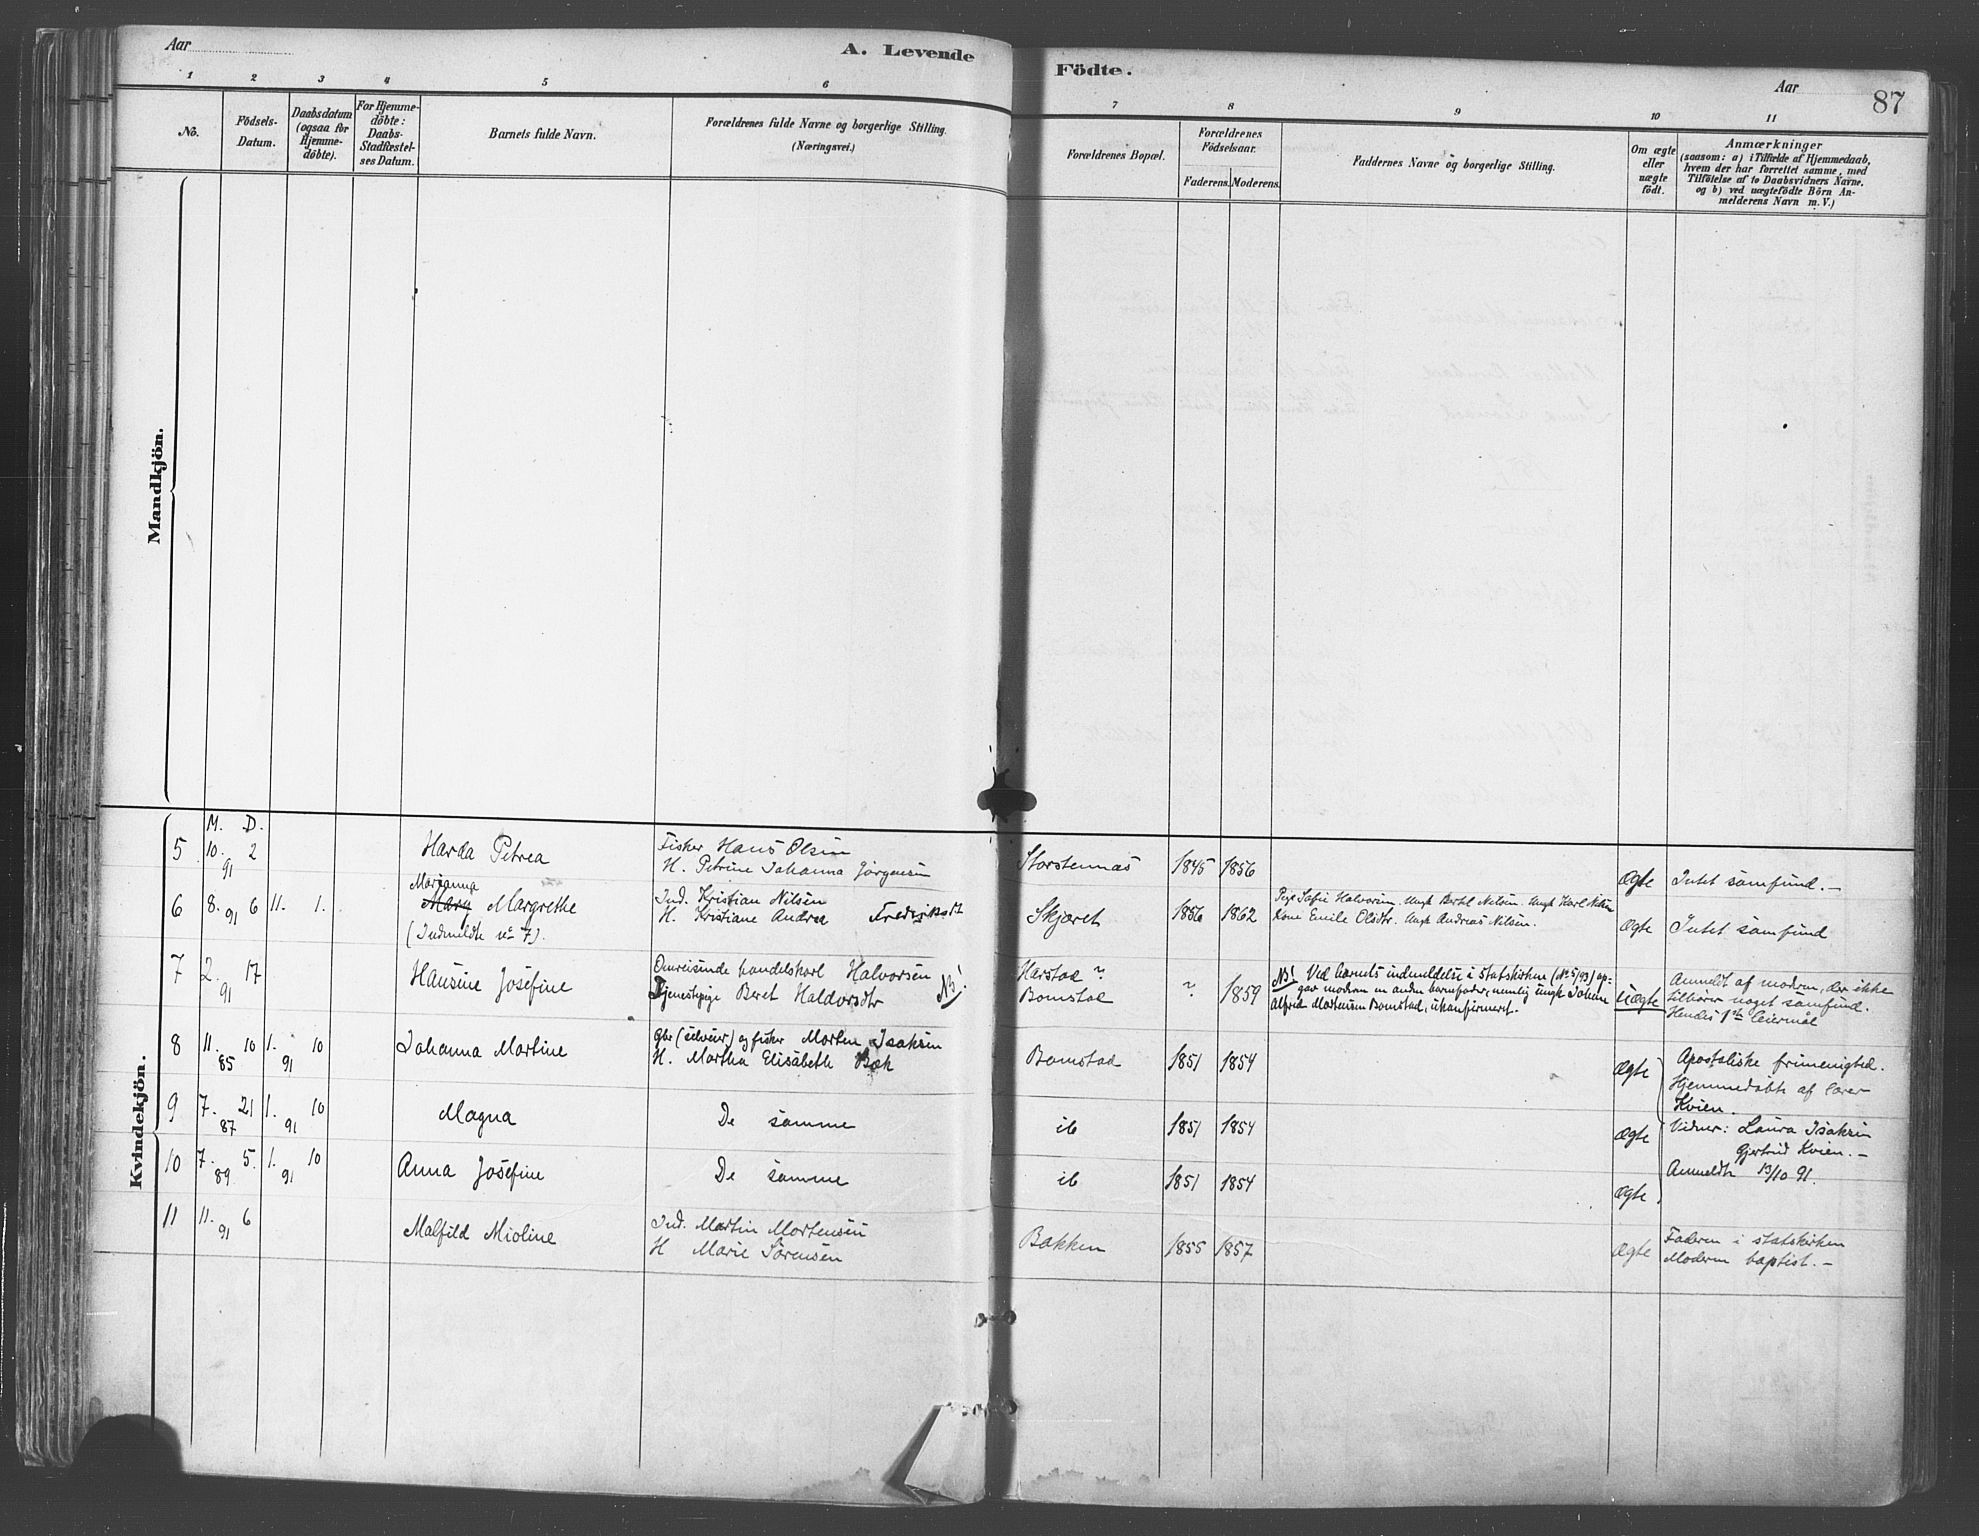 Aar
A. Levende
Födte.
Aar
87
1 2 3 4 5 6 7 8 9 10 11
No.
Födsels-
Datum.
Daabsdatum
(ogsaa for
Hjemme-
döbte).
For Hjemme-
döbte:
Daabs-
Stadfæstel-
ses Datum.
Barnets fulde Navn.
Forældrenes fulde Navne og borgerlige Stilling.
(Næringsvei.)
Forældrenes Bopæl.
Forældrenes
Födselsaar.
Faderens.
Moderens.
Faddernes Navne og borgerlige Stilling.
Om ægte
eller
uægte
födt.
Anmærkninger
(saasom: a) i Tilfælde af Hjemmedaab,
hvem der har forrettet samme, med
Tilföielse af to Daabsvidners Navne,
og b) ved uægtefödte Börn An-
melderens Navn m. V.)
Mandkjön.
Kvindekjön.
M. D.
5 10. 2 91 Harda Petrea
Fisker Hans Olsen
H. Petrine Johanna Jørgensen
Storstennæs 1845 1856 Ægte Intet samfund. —
6 8. 6 91 11. 1.
Marianna
Mary Margrethe
(Indmeldte no 7).
Ind. Kristian Nilsen
H. Kristiane Andrea Frederiksdt
Skjæret 1856 1862
Pige Sofie Halvorsen. Ungk Bertel Nilsen. Ungk Karl Nilsen
Kone Emilie Olsdtr. Ungk Andreas Nilsen.
Ægte Intet samfund
7 2. 17 91 Hansine Josefine
Omreisende handelskarl Halvorsen
Tjenestepige Beret Haldorsdtr NB!
Harstad ?
Bomstad
? 1859
NB! Ved barnets indmeldelse i statskirken (No 5/93) op-
gav modern en anden barnefader, nemlig ungk Johan
Alfred Mortensen Bomstad, ukonfirmeret.
Uægte
Anmeldt af modern, der ikke
tilhører noget samfund.
Hendes 1ste leiermål
8 11. 10 85 1. 10 91 Johanna Martine
Gbr (selveier) og fisker Morten Isaksen
H. Martha Elisabeth Bæk
Bomstad 1851 1854 Ægte
Apostoliske frimenighed.
Hjemmedøbte af lærer
Kvien.
9 7. 21 87 1. 10 91 Magna De samme ib 1851 1854 Ægte
Vidner: Laura Isaksen
Gjertrud Kvien. —
10 7. 5. 89 1. 10 91 Anna Josefine De samme ib 1851 1854 Ægte
Anmeldte 13/10 91.
11 11. 6 91 Malfild Mioline
Ind. Martin Mortensen
H Marie Sørensen
Bakken 1855 1857 Ægte
Faderen i statskirken
Modern baptist. —